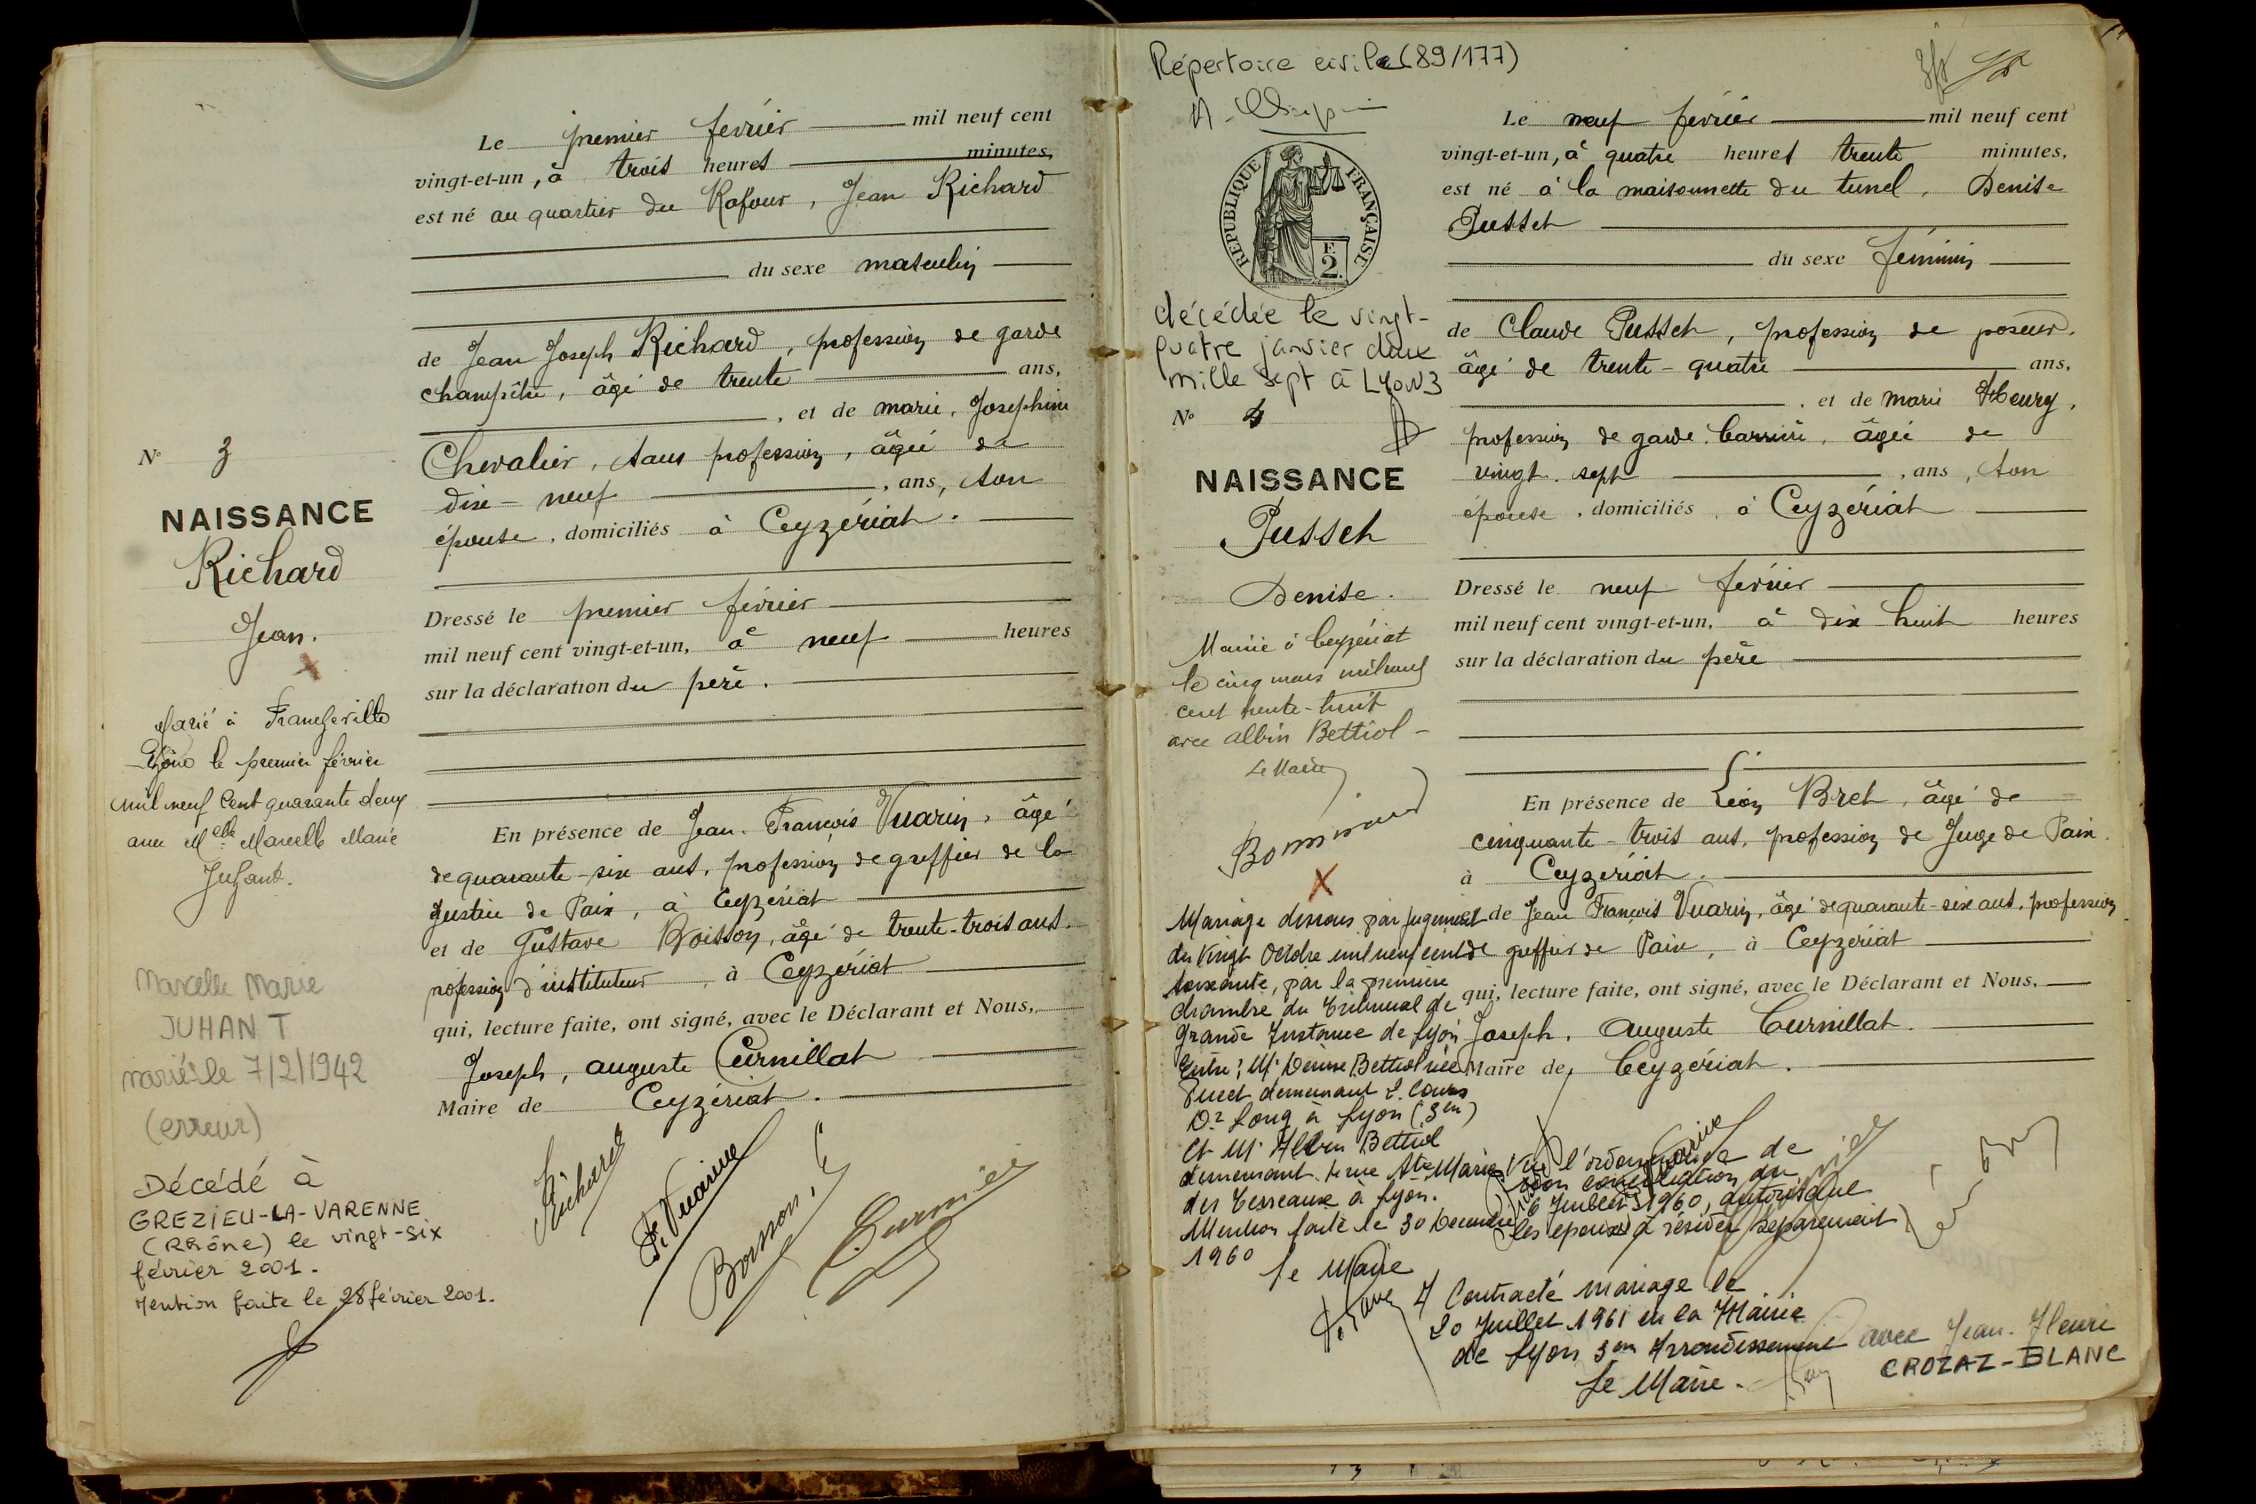 Le premier fevrier mil neuf cent
vingt-et-un, à trois heures minutes,
est né au quartier du Kafour, Jean Richard
du sexe masculin
de Jean Joseph Richard, profession de garde
champêtre, âgé de trente ans,
, et de marie, Josephine
Chevalier, sans profession, âgée de
dix-neuf, ans, son
épouse, domiciliés à Ceyzériat.
Dressé le premier février
mil neuf cent vingt-et-un, à neuf heures
sur la déclaration du père.
En présence de Jean. François Vuarin, âgé
de quarante-six ans, profession de greffier de la
Justice de Paix, à Ceyzériat
et de Gustave Boisson, âgé de trente-trois ans.
profession d'instituteur, à Ceyzériat
qui, lecture faite, ont signé, avec le Déclarant et Nous,
Joseph, auguste Curnillat
Maire de Ceyzériat.
N° 3
NAISSANCE
Richard
Jean.
Marié à Francheville
Rhône le premier février
mil neuf cent quarante deux
avec Melle Marcelle Marie
Juhant.
Marcelle Marie
JUHANT
marié le 7/2/1942
(erreur)
Décédé à
GREZIEU-LA-VARENNE
(Rhône) le vingt-six
février 2001.
Mention faite le 28 février 2001.
Richard
Boisson
Répertoire civil (89/177)
RÉPUBLIQUE FRANÇAISE
2
décédée le vingt-
quatre janvier deux
mille sept à LYON 3
N° 4
NAISSANCE
Pusset
Denise.
Mariée à Ceyzériat
le cinq mars mil neuf
cent trente-huit
avec Albin Bettiol -
Le Maire
Mariage dissous par jugement
du vingt Octobre mil neuf cent
soixante, par la première
chambre du Tribunal de
Grande Instance de Lyon
Entre: Me Denise Bettiol née
Pusset demeurant 2. Cours
Dr Long à Lyon (3em)
Et Mr Albin Bettiol
demeurant rue Ste Marie
des Terreaux à Lyon.
Mention faite le 30 Décembre
1960
Le Maire
Le neuf février mil neuf cent
vingt-et-un, à quatre heures trente minutes,
est né à la maisonnette du tunel, Denise
Pusset
du sexe féminin
de Claude Pusset, profession de poseur,
âgé de trente-quatre ans,
, et de marie Fleury,
profession de garde barrière, âgée de
vingt-sept, ans, son
épouse, domiciliés à Ceyzériat
Dressé le neuf fevrier
mil neuf cent vingt-et-un, à dix huit heures
sur la déclaration du père
En présence de Léon Bret, âgé de
cinquante-trois ans, profession de Juge de Paix.
à Ceyzériat.
et de Jean François Vuarin, âgé de quarante-six ans, profession
de greffier de Paix, à Ceyzériat
qui, lecture faite, ont signé, avec le Déclarant et Nous,
Joseph, Auguste Curnillat.
Maire de Ceyzériat.
Vu l'ordonnance de
non conciliation du
6 Juillet 1960, autorisant
les époux à résider séparement
Contracté mariage le
20 Juillet 1961 en la Mairie
de Lyon 3em Arrondissement avec Jean. Henri
CROZAZ-BLANC
Le Maire.